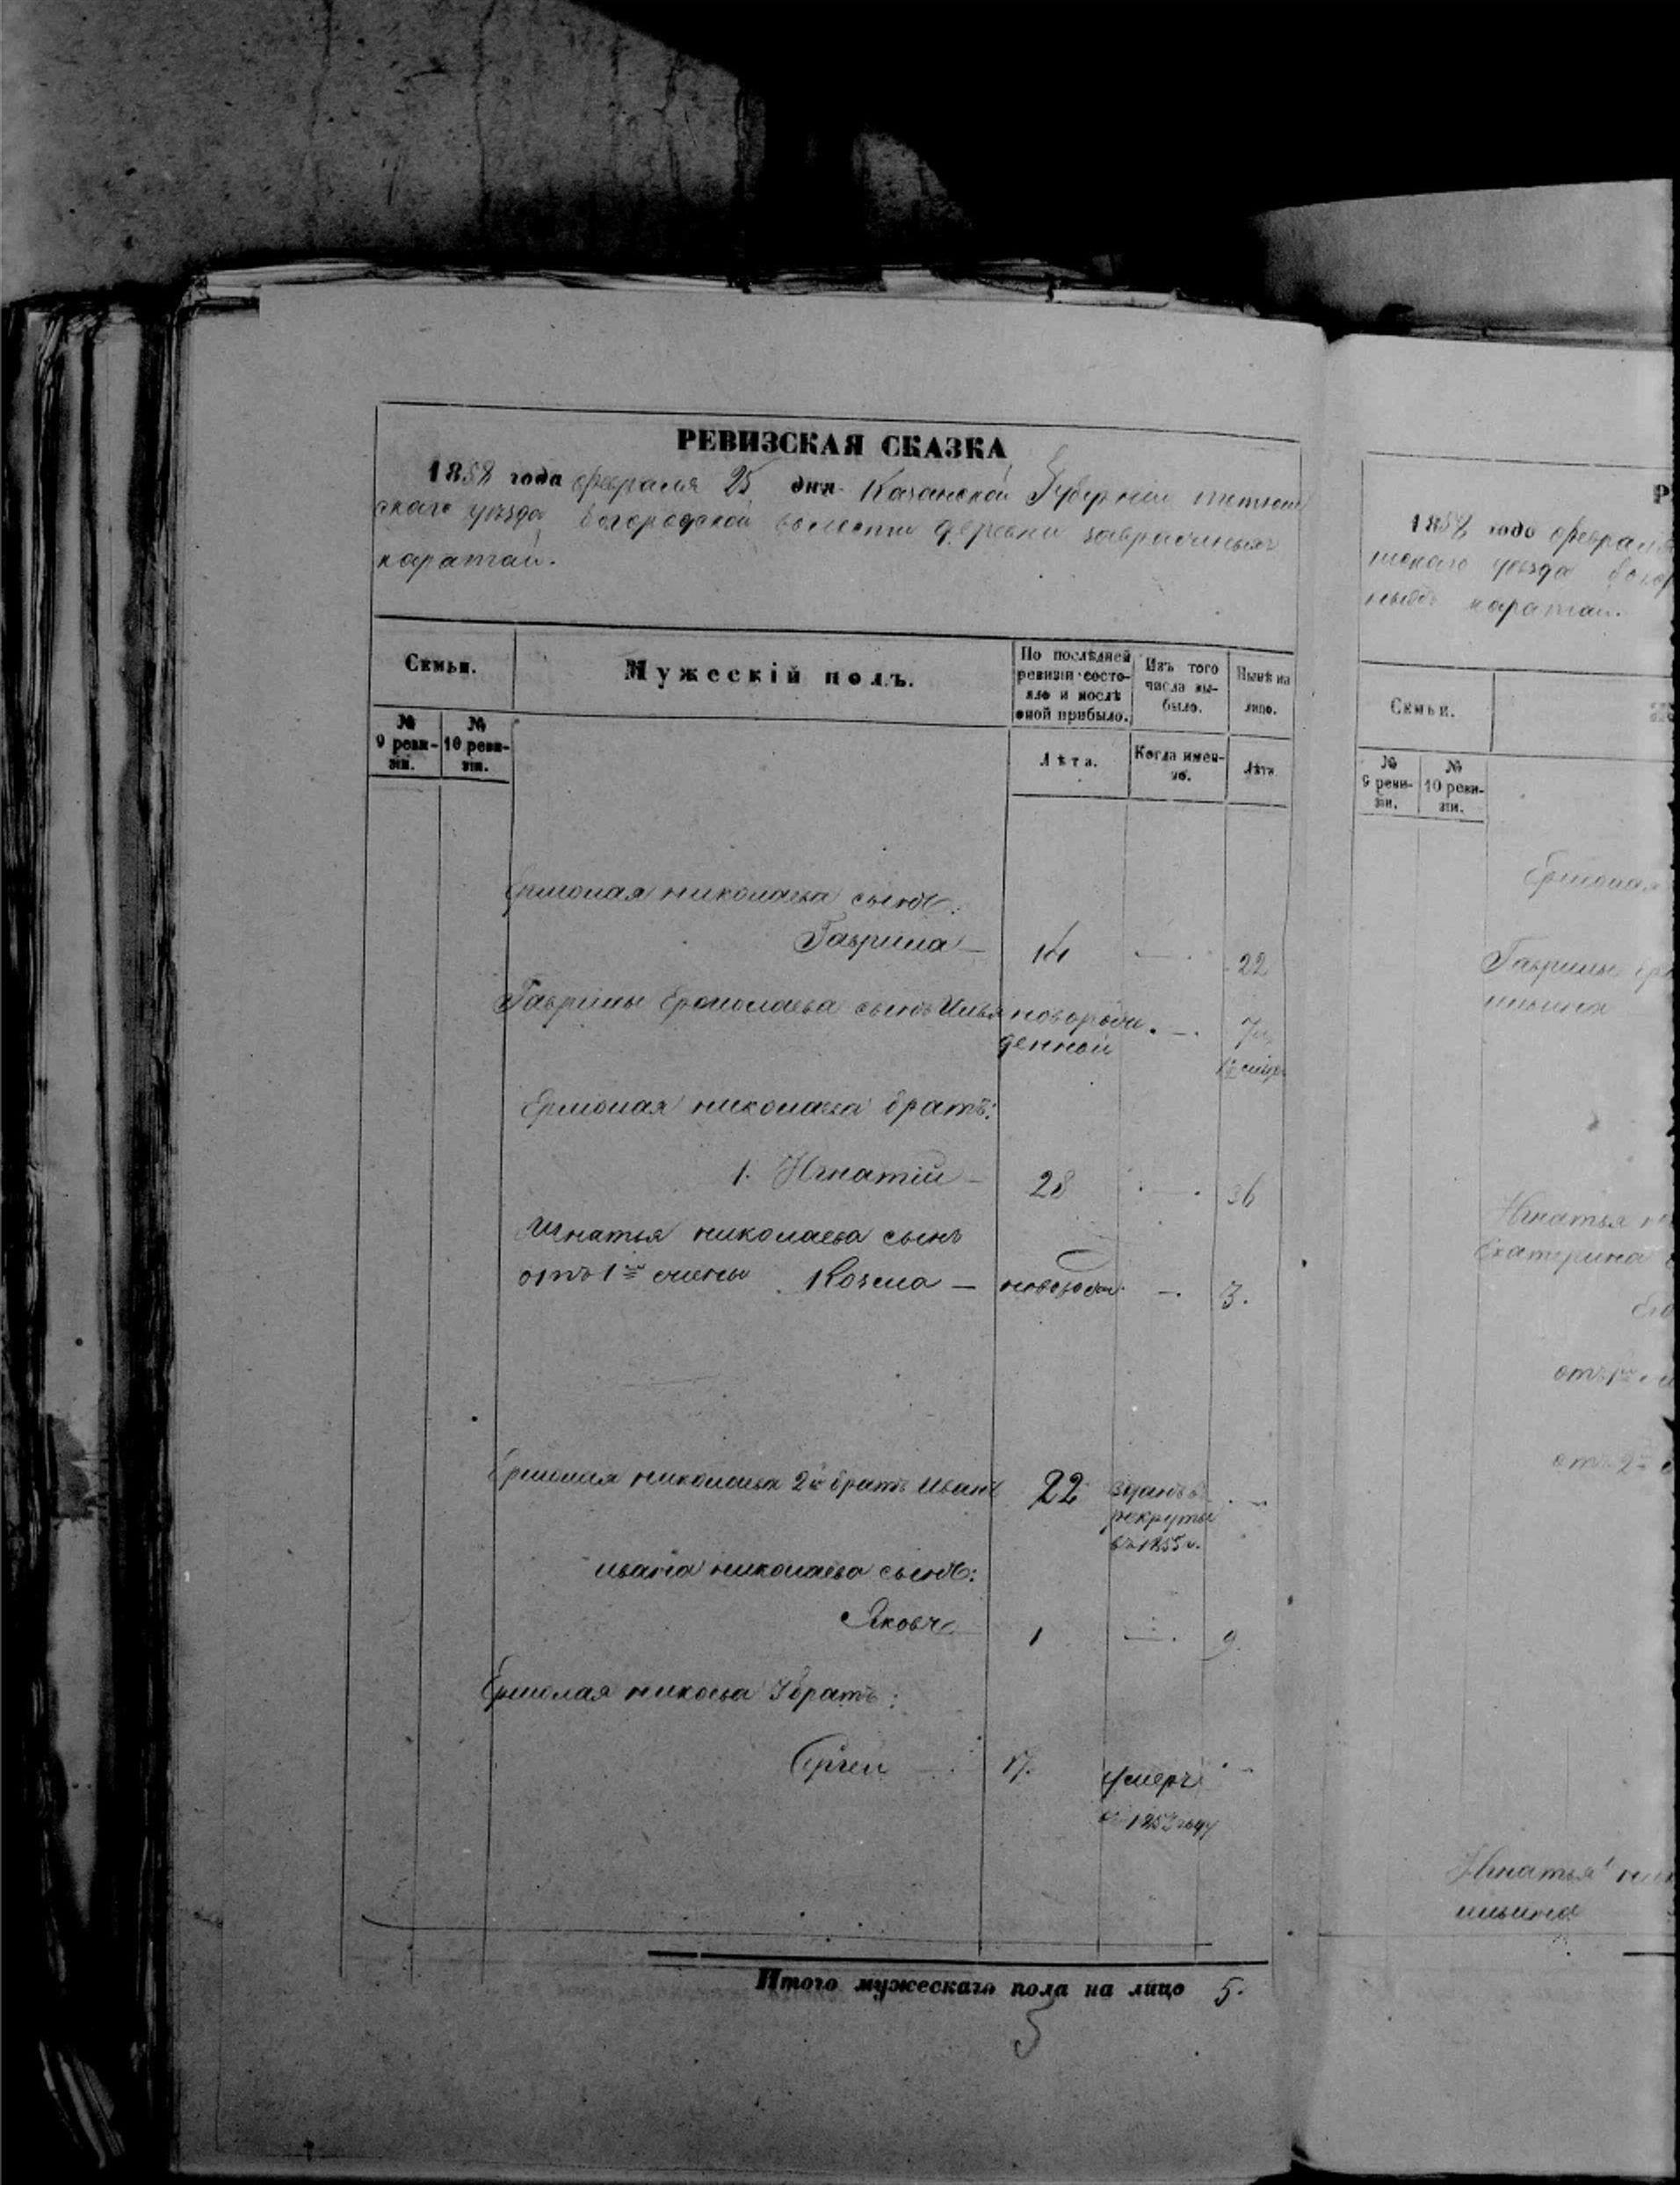 РЕВИЗСКАЯ СКАЗКА
1858 года февраля 25 дня Казанской Губерніи тетюш
скаго уѣзда богородской волости деревни заовражныхъ
каратай.
Семьи.
Мужескій полъ.
По послѣдней ревизіи состояло и послѣ оной прибыло.
Изъ того числа выбыло.
Нынѣ на лицо.
№ 9 ревизіи.
№ 10 ревизіи.
Лѣта.
Когда именно.
Лѣта
Ермолая николаева сынъ:
Гаврила — 14 — 22
Гаврилы Ермолаева сынъ Илья новорож
денной — 7
Ермолая николаева братъ:
1. Игнатій — 28 — 36
Игнатья николаева сынъ
отъ 1й жены Козма — новорож — 3.
Ермолая николаева 2й братъ Иванъ 22 зданъ въ
рекруты
въ 1855 г.
ивана николаева сынъ:
Яковъ 1 — 9.
Ермолая никоева 3 братъ:
Сергей — 17. умеръ
1853 году
Итого мужескаго пола на лицо 5.
5
Р
1858 года феврал
шскаго уѣзда богор
ныхъ каратаи.
Семьи.
№ 9 ревизіи.
№ 10 ревизіи.
Ермолая
Гаврилы ер
ильина
Игнатья н
Екатерина
отъ 1й
отъ 2й
Игнатья ник
ильина